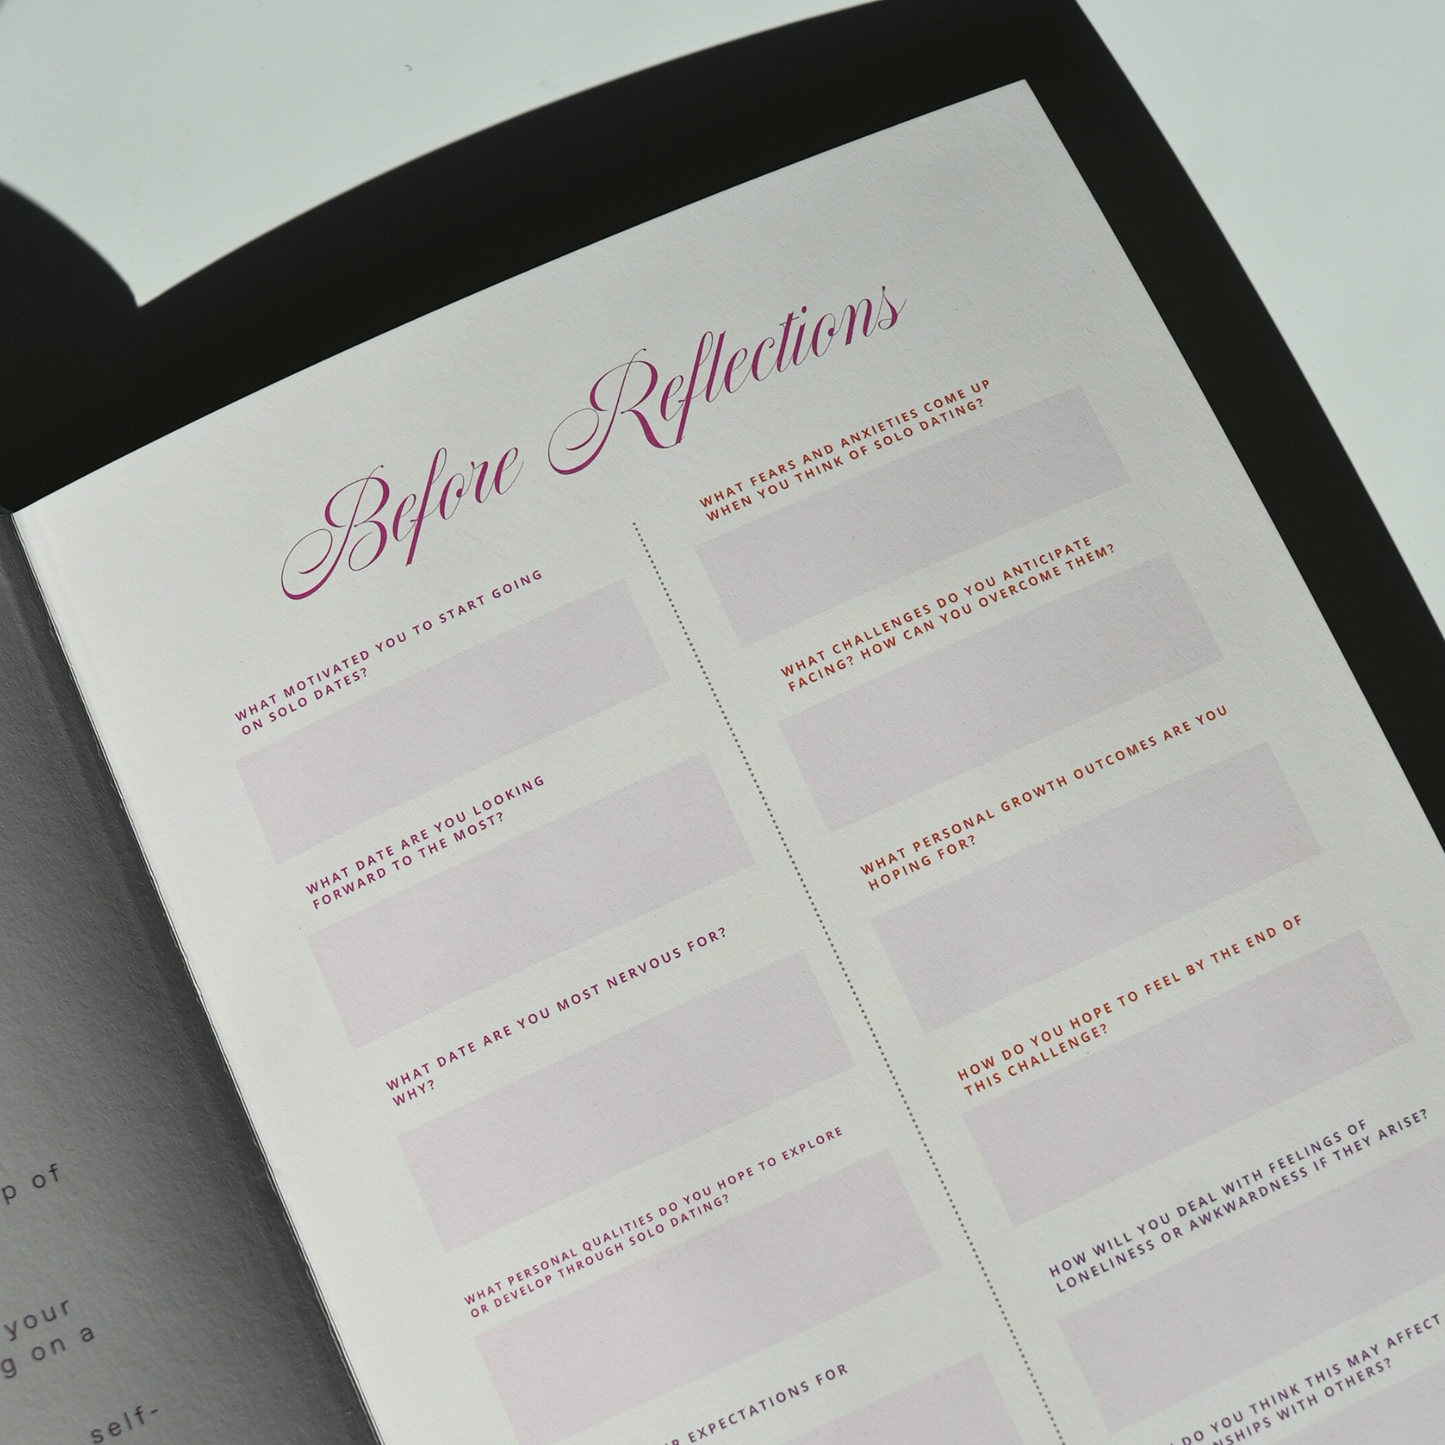 p of
your
g on a
self-
Before Reflections
WHAT MOTIVATED YOU TO START GOING
ON SOLO DATES?
WHAT DATE ARE YOU LOOKING
FORWARD TO THE MOST?
WHAT DATE ARE YOU MOST NERVOUS FOR?
WHY?
WHAT PERSONAL QUALITIES DO YOU HOPE TO EXPLORE
OR DEVELOP THROUGH SOLO DATING?
EXPECTATIONS FOR
WHAT FEARS AND ANXIETIES COME UP
WHEN YOU THINK OF SOLO DATING?
WHAT CHALLENGES DO YOU ANTICIPATE
FACING? HOW CAN YOU OVERCOME THEM?
WHAT PERSONAL GROWTH OUTCOMES ARE YOU
HOPING FOR?
HOW DO YOU HOPE TO FEEL BY THE END OF
THIS CHALLENGE?
HOW WILL YOU DEAL WITH FEELINGS OF
LONELINESS OR AWKWARDNESS IF THEY ARISE?
DO YOU THINK THIS MAY AFFECT
NSHIPS WITH OTHERS?